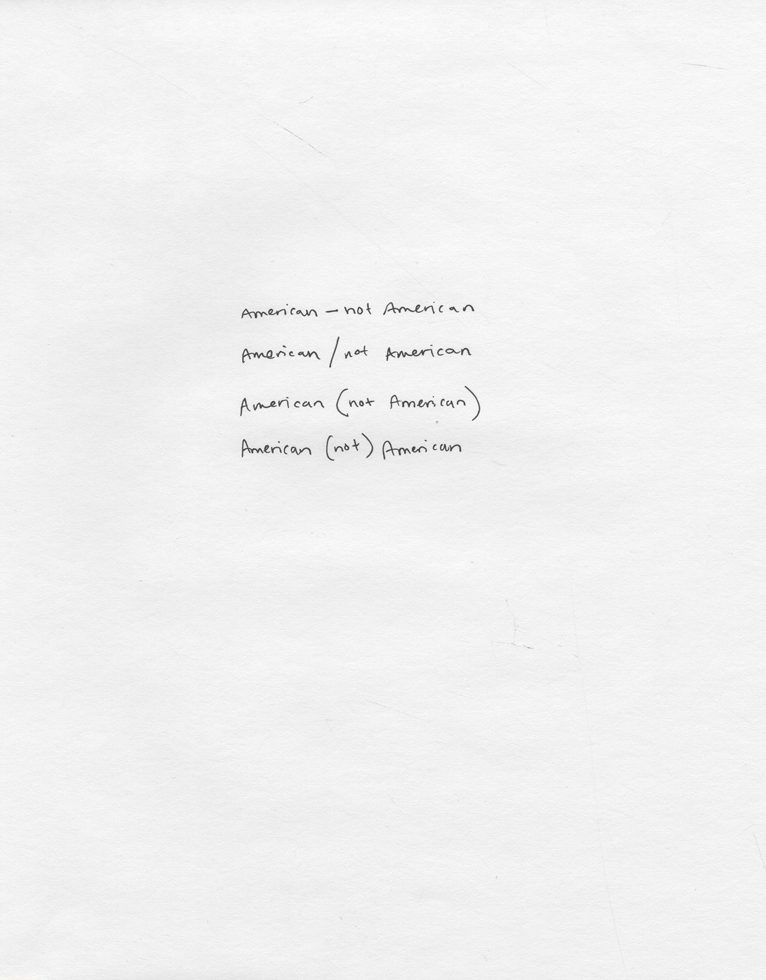 American – not American
American / not American
American (not American)
American (not) American